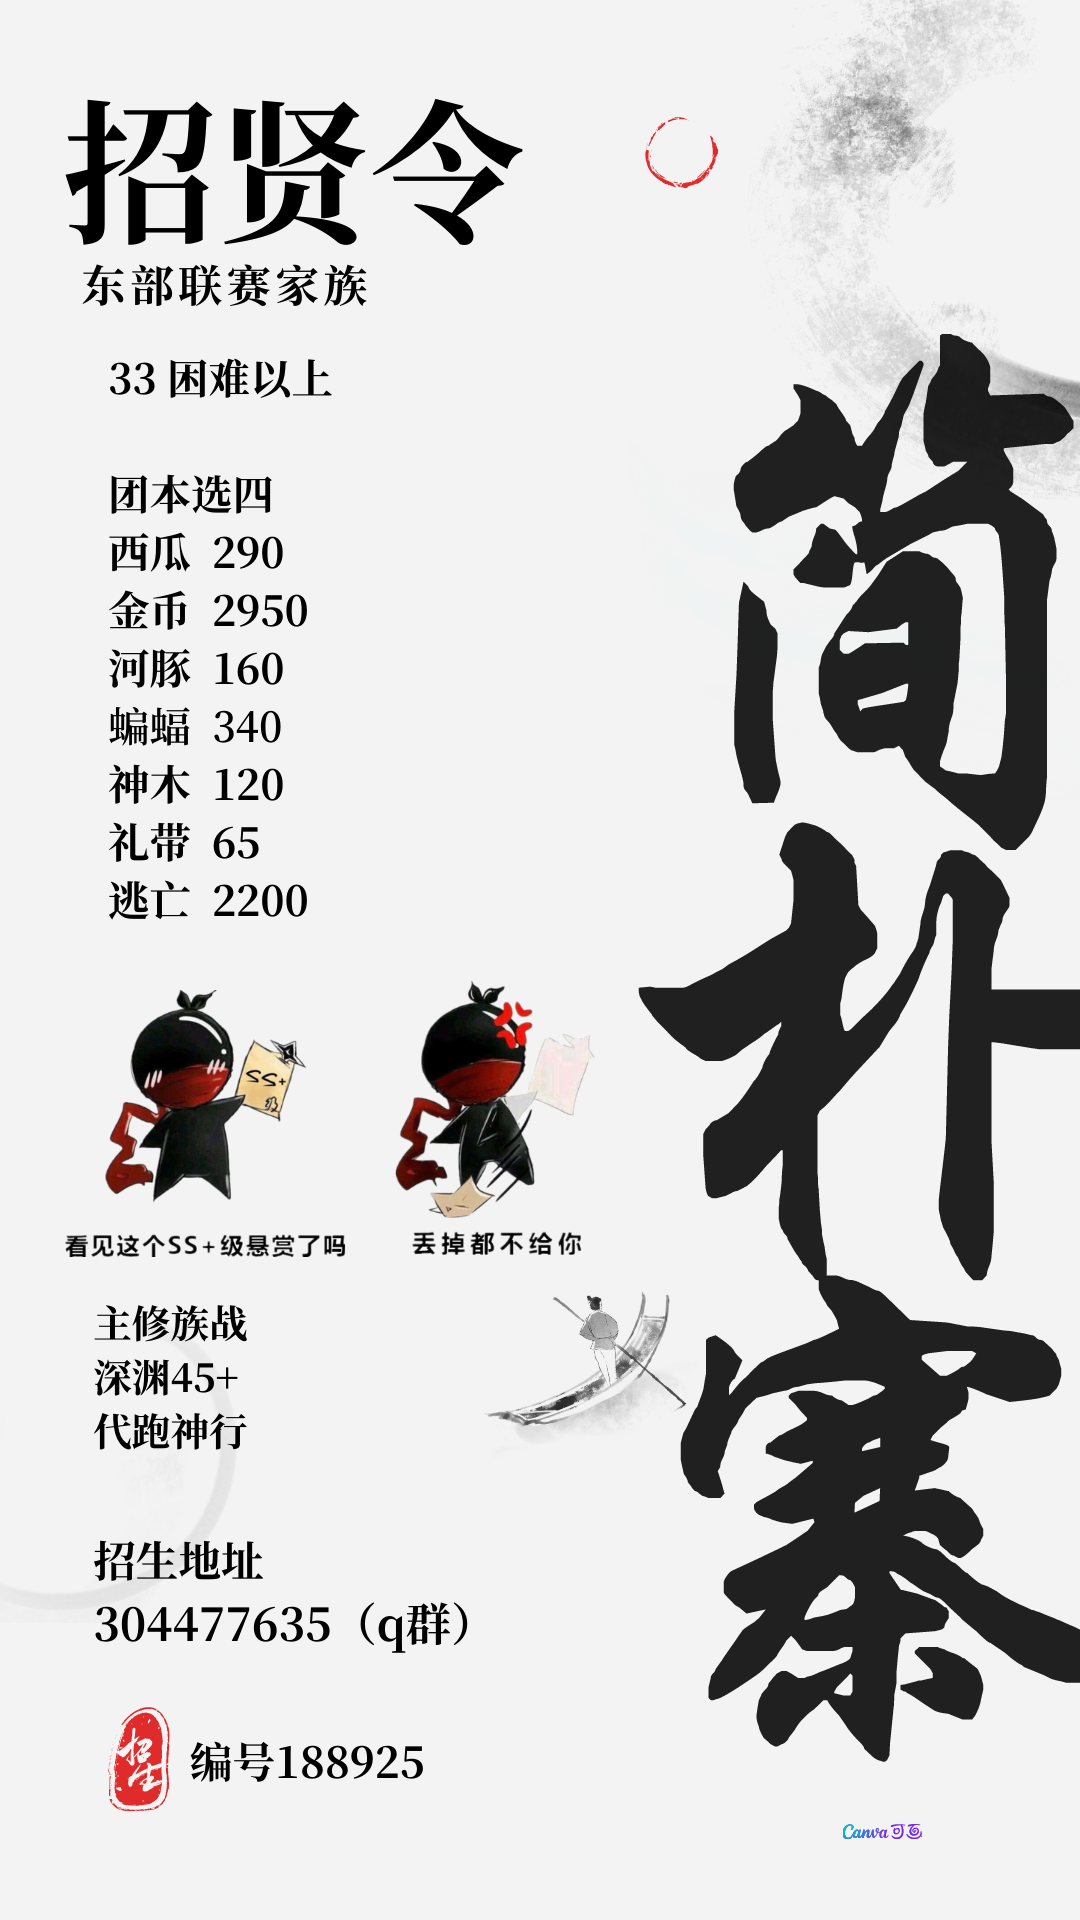 招贤令
东部联赛家族
33 困难以上
团本选四
西瓜 290
金币 2950
河豚 160
蝙蝠 340
神木 120
礼带 65
逃亡 2200
简朴寨
SS+
级
看见这个SS+级悬赏了吗
丢掉都不给你
主修族战
深渊45+
代跑神行
招生地址
304477635（q群）
招生
编号188925
Canva可画